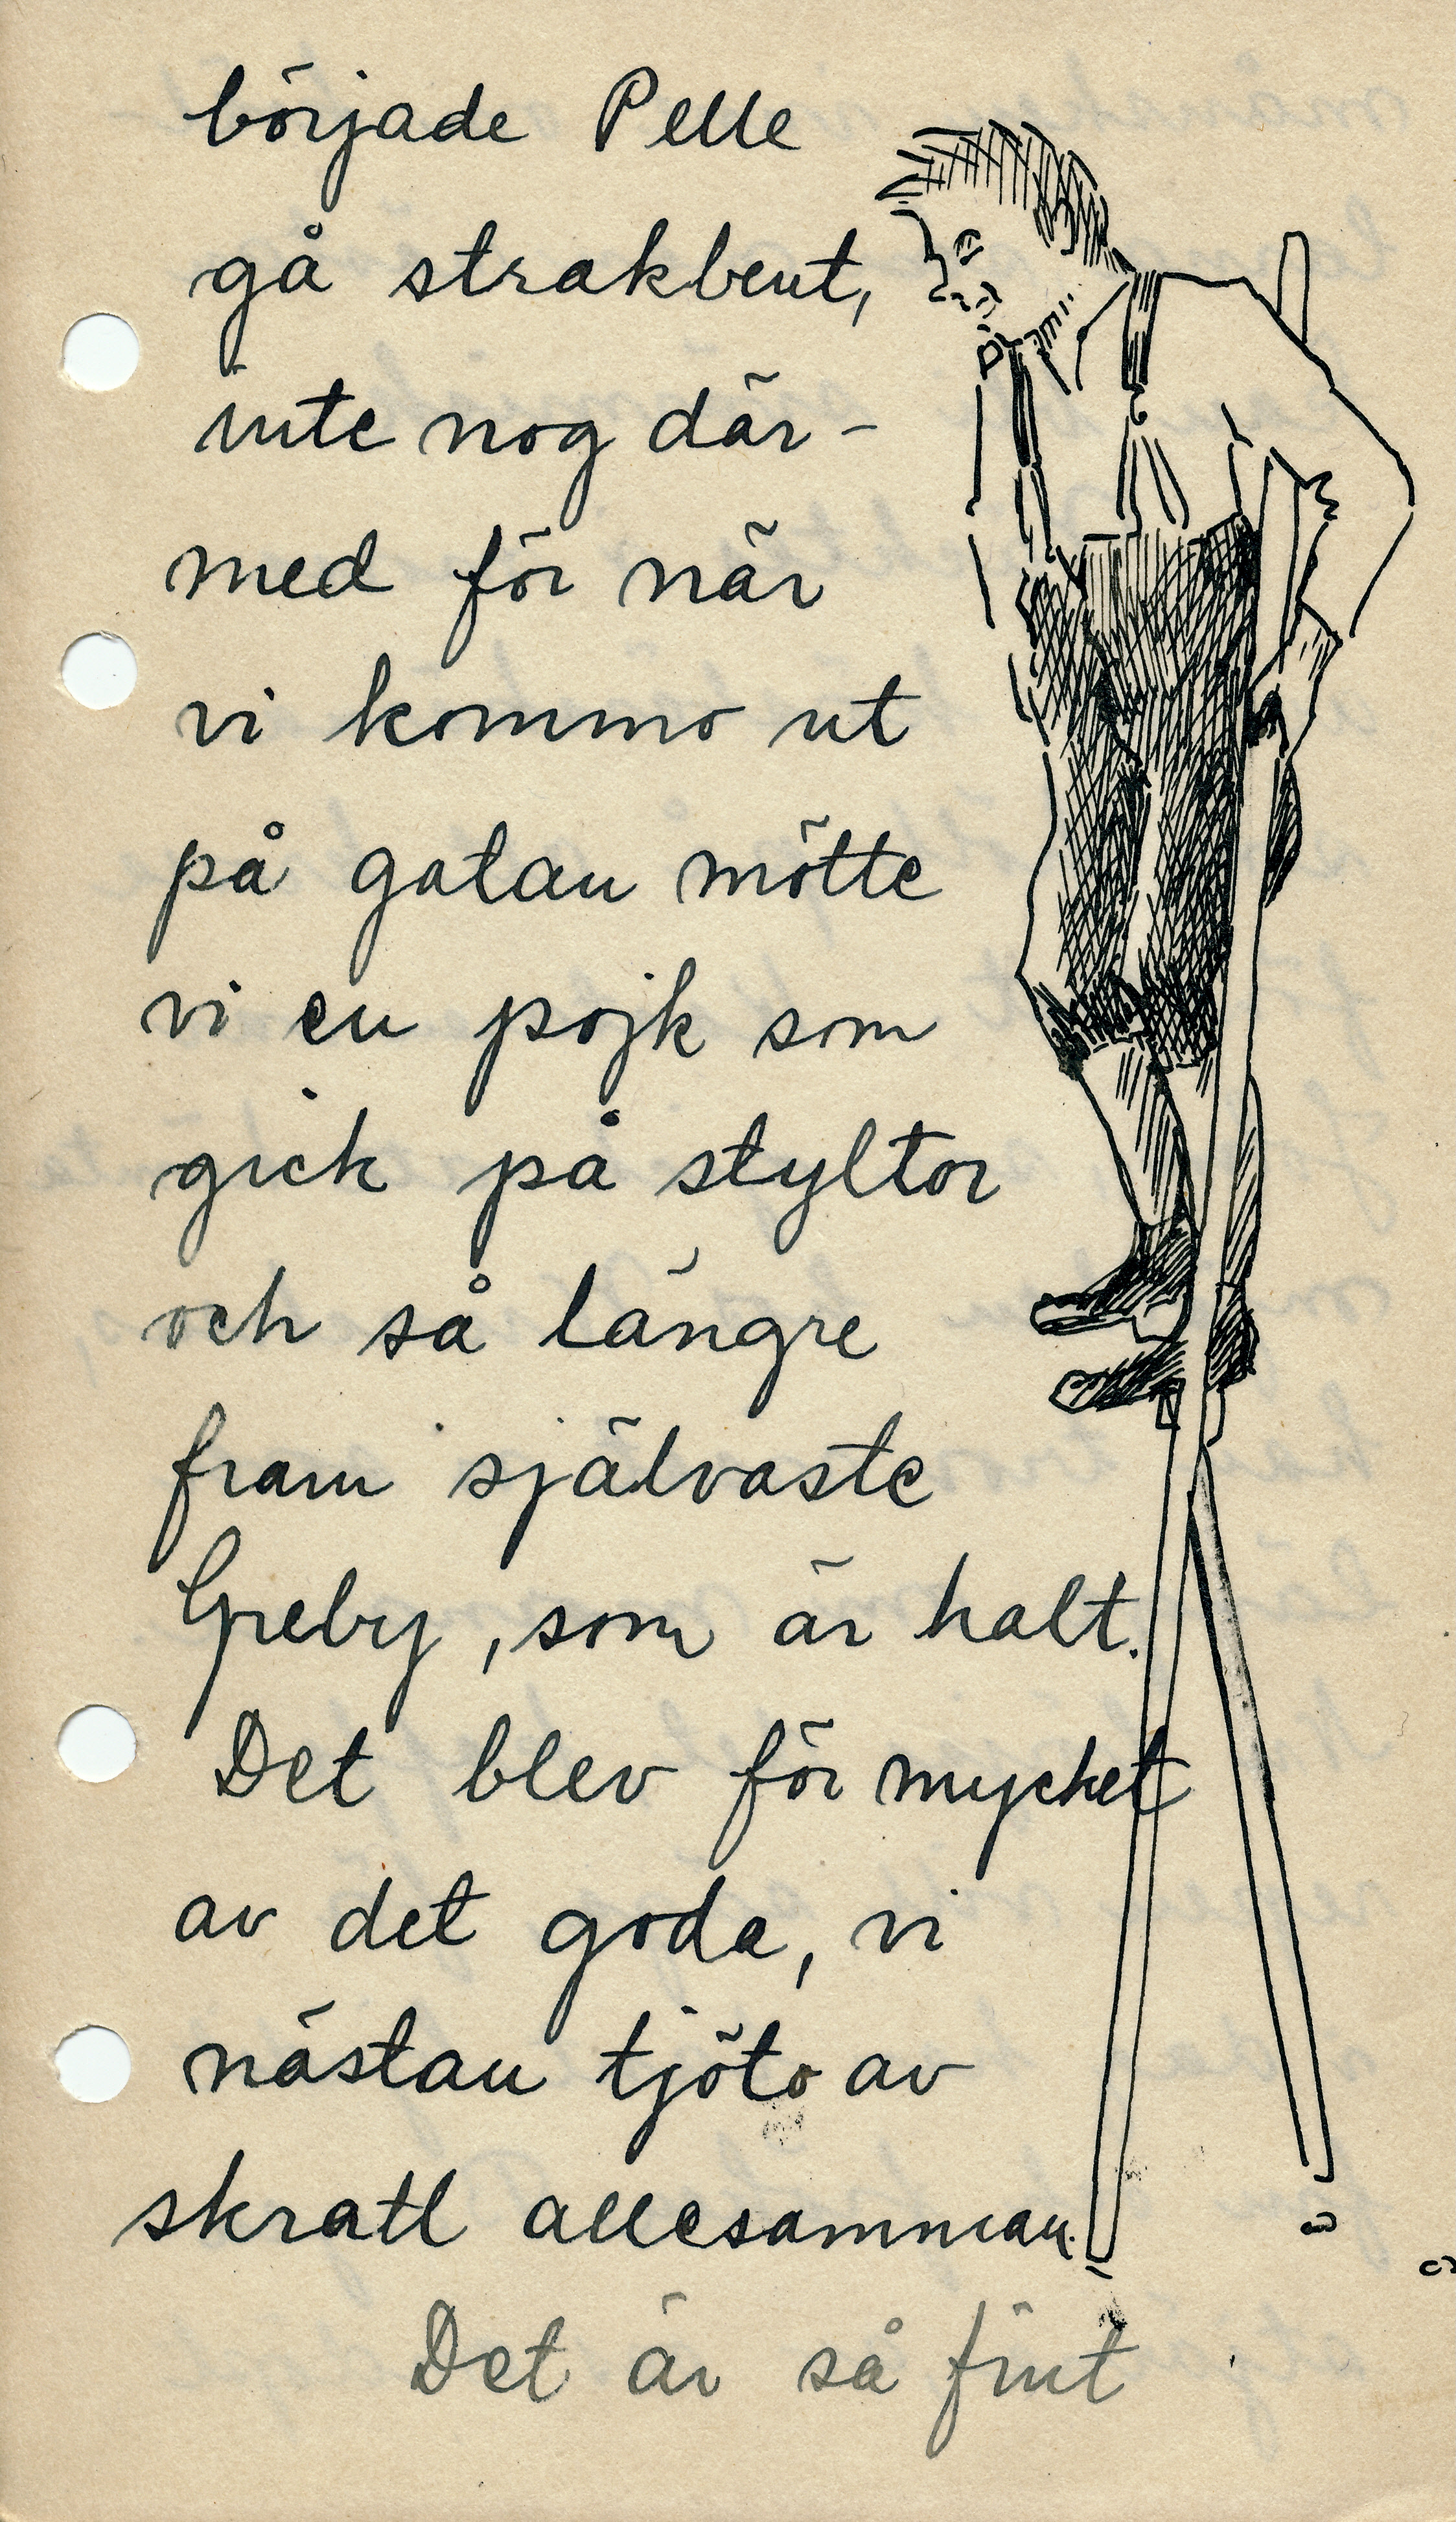 började Pelle
gå strakbent,
inte nog där-
med för när
vi kommo ut
på gatan mötte
vi en pojk som
gick på styltor
och så längre
fram självaste
Greby, som är halt.
Det blev för mycket
av det goda, vi
nästan tjöto av
skratt allesamman.
Det är så fint